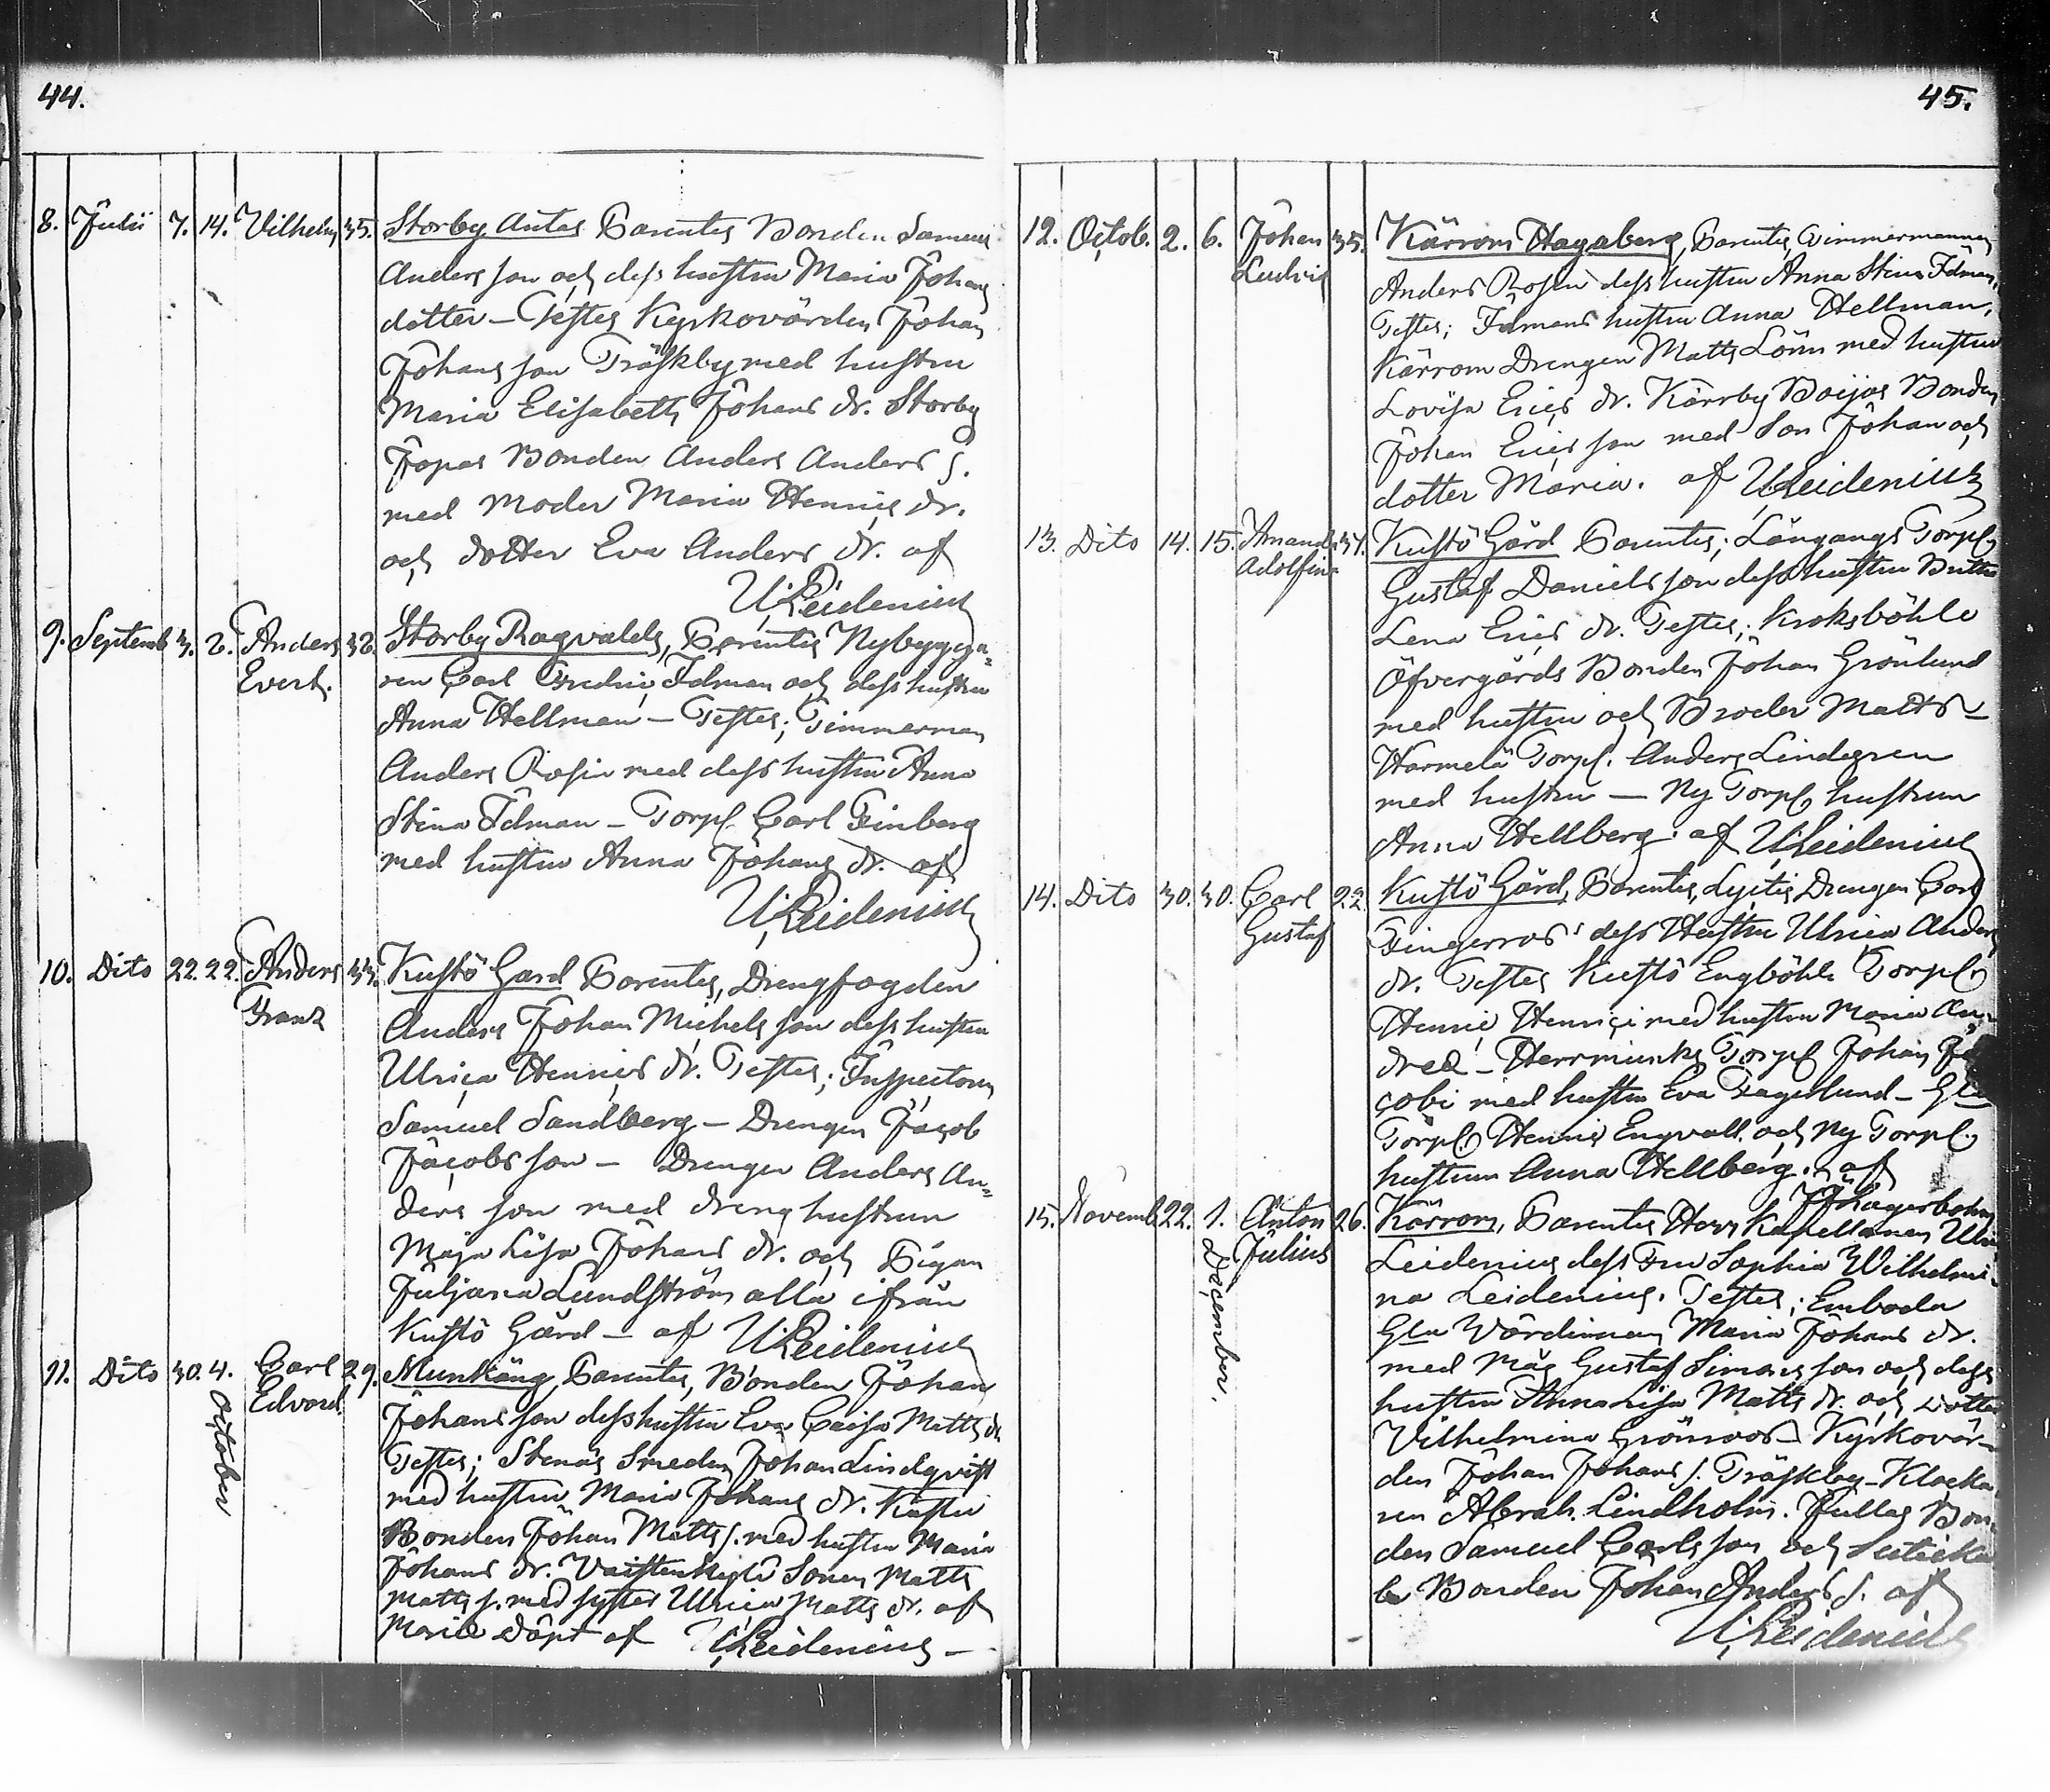 44.
8. Julii 7. 14. Vilhelm 35. Storby Antas Parentes Bonden Samuel
Anders son och dess hustru Maria Johans
dotter – Testes Kyrkovärden Johan
Johans son Träskby med hustru
Maria Elisabeth Johans dr. Storby
Jopas Bonden Anders Anders s.
med Moder Maria Henrics dr.
och dotter Eva Anders dr. af
U. Leidenius
9. Septemb 3. 6. Anders 32. Storby Ragvalds, Parentes Nybygga=
Evert. ren Carl Fredric Idman och dess hustru
Anna Hellman – Testes; Timmerman
Anders Rosin med dess hustru Anna
Stina Idman – Torp. Carl Finberg
med hustru Anna Johans dr. af
U. Leidenius
10. Dito 22. 22. Anders 33. Kustö Gard Parentes, Drengfogden
Franz Anders Johan Michels son dess hustru
Ulrica Henrics dr. Testes; Inspectorn
Samuel Sandberg – Drengen Jacob
Jacobs son – Drengen Anders An=
ders son med dreng hustrun
Maja Lisa Johans dr. och Pigan
Juljana Lundström alla ifrån
Kustö Gård – af U. Leidenius
11. Dito 30. 4. October Carl 29. Munkäng, Parentes, Bonden Johan
Edvard. Johans son dess hustru Eva Caisa Matts dr
Testes; Stenäs Smeden Johan Lindqvist
med hustru Maria Johans dr. Kustu
Bonden Johan Matts s. med hustru Maria
Johans dr. Sonen Matts
Matts s. med syster Ulrica Matts dr. af
döpt af U. Leidenius –
45.
12. Octob. 2. 6. Johan 35. Kärrom Hagaberg, Parentes, Timmermannen
Ludvig Anders Rosin dess hustru Anna Stina Idman,
Testes; Idmans hustru Anna Hellman,
Kärrom Drengen Matts Lönn med hustru
Lovisa Erics dr. Kärrby Böijas Bonden
Johan Erics son med Son Johan och
dotter Maria. af U. Leidenius
13. Dito 14. 15. Amanda 37. Kustö Gård Parentes; Långangs Torp.
Adolfina Gustaf Daniels son dess hustru Britta
Lena Erics dr. Testes; Kroksböhle
Öfvergårds Bonden Johan Grönlund
med hustru och Broder Matts –
Harmelä Torp. Anders Lindegren
med hustru – Ny Torp. hustrun
Anna Hellberg. af U. Leidenius
14. Dito 30. 30. Carl 22. Kustö Gård, Parentes, Drengen Carl
Gustaf Fingerroos dess Hustru Ulrica Anders
dr. Testes Kustö Engböhle Torp.
Henric Henrici med hustru Maria An=
dreæ – Herrmunks Torp. Johan Ja
cobi med hustru Eva Fagerlund – Gla
Torp. Henric Engvall. och Ny Torp.
hustrun Anna Hellberg. af
15. Novemb 22. 1. December. Anton 26. Kärrom, Parentes Herr Kapellanen Ulric
Julius Leidenius dess Fru Sophia Wilhelmi=
na Leidenius. Testes; Emboda
Gla Värdinnan Maria Johans dr.
med Måg Gustaf Simons son och dess
hustru Anna Lisa Matts dr. och dotter
Vilhelmina Grönroos – Kyrkovär=
den Johan Johans s. Träskby – Klocka
ren Abrah. Lindholm. Jullas Bon=
den Samuel Carls son och
Bonden Johan Anders s. af
U. Leidenius